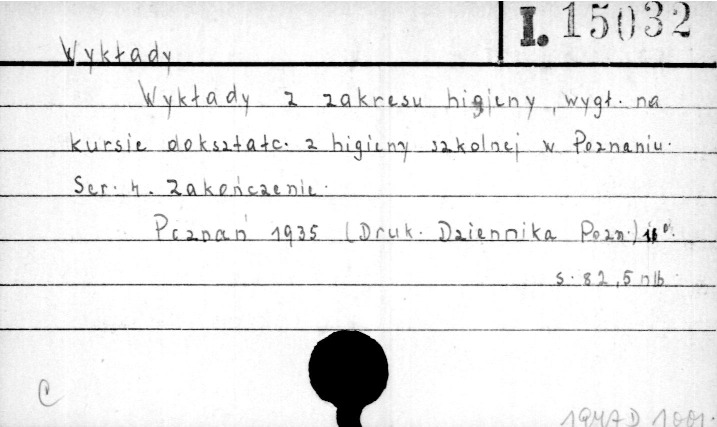 I. 15032
Wykłady
Wykłady z zakresu higieny, wygł. na
kursie dokształc. z higieny szkolnej w Poznaniu.
Ser. 4. Zakończenie.
Poznań 1935 (Druk. Dziennika Pozn.) 16°.
s. 82, 5 nlb.
C